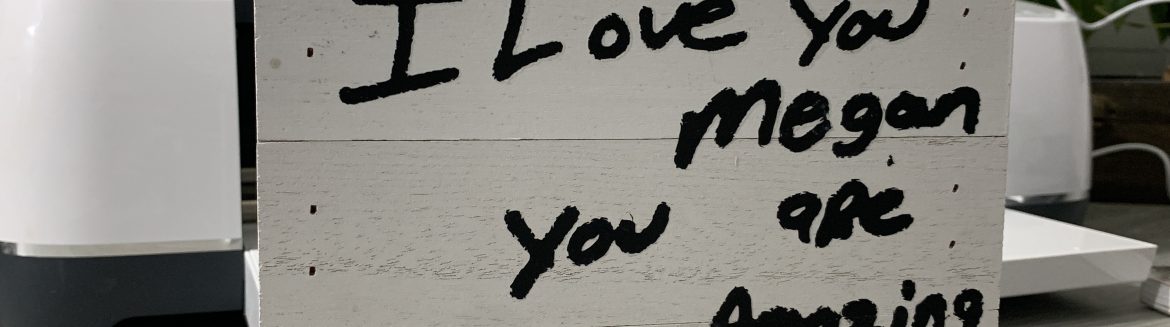 I Love You
Megan
You are
Amazing